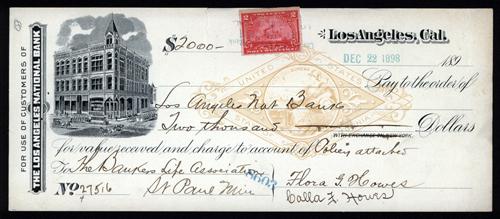 FOR USE OF CUSTOMERS OF
THE LOS ANGELES NATIONAL BANK
$2000-
2 2
Los Angeles, Cal.
DEC 22 1898 189
Pay to the order of
Los Angeles Nat Bank
Two thousand Dollars
WITH EXCHANGE ON NEW YORK.
UNITED STATES
for value received and charge to account of Policy attached
To The Bankers Life Association
St Paul Minn
8603
No 27516
Flora G. Howes
Calla E Howes